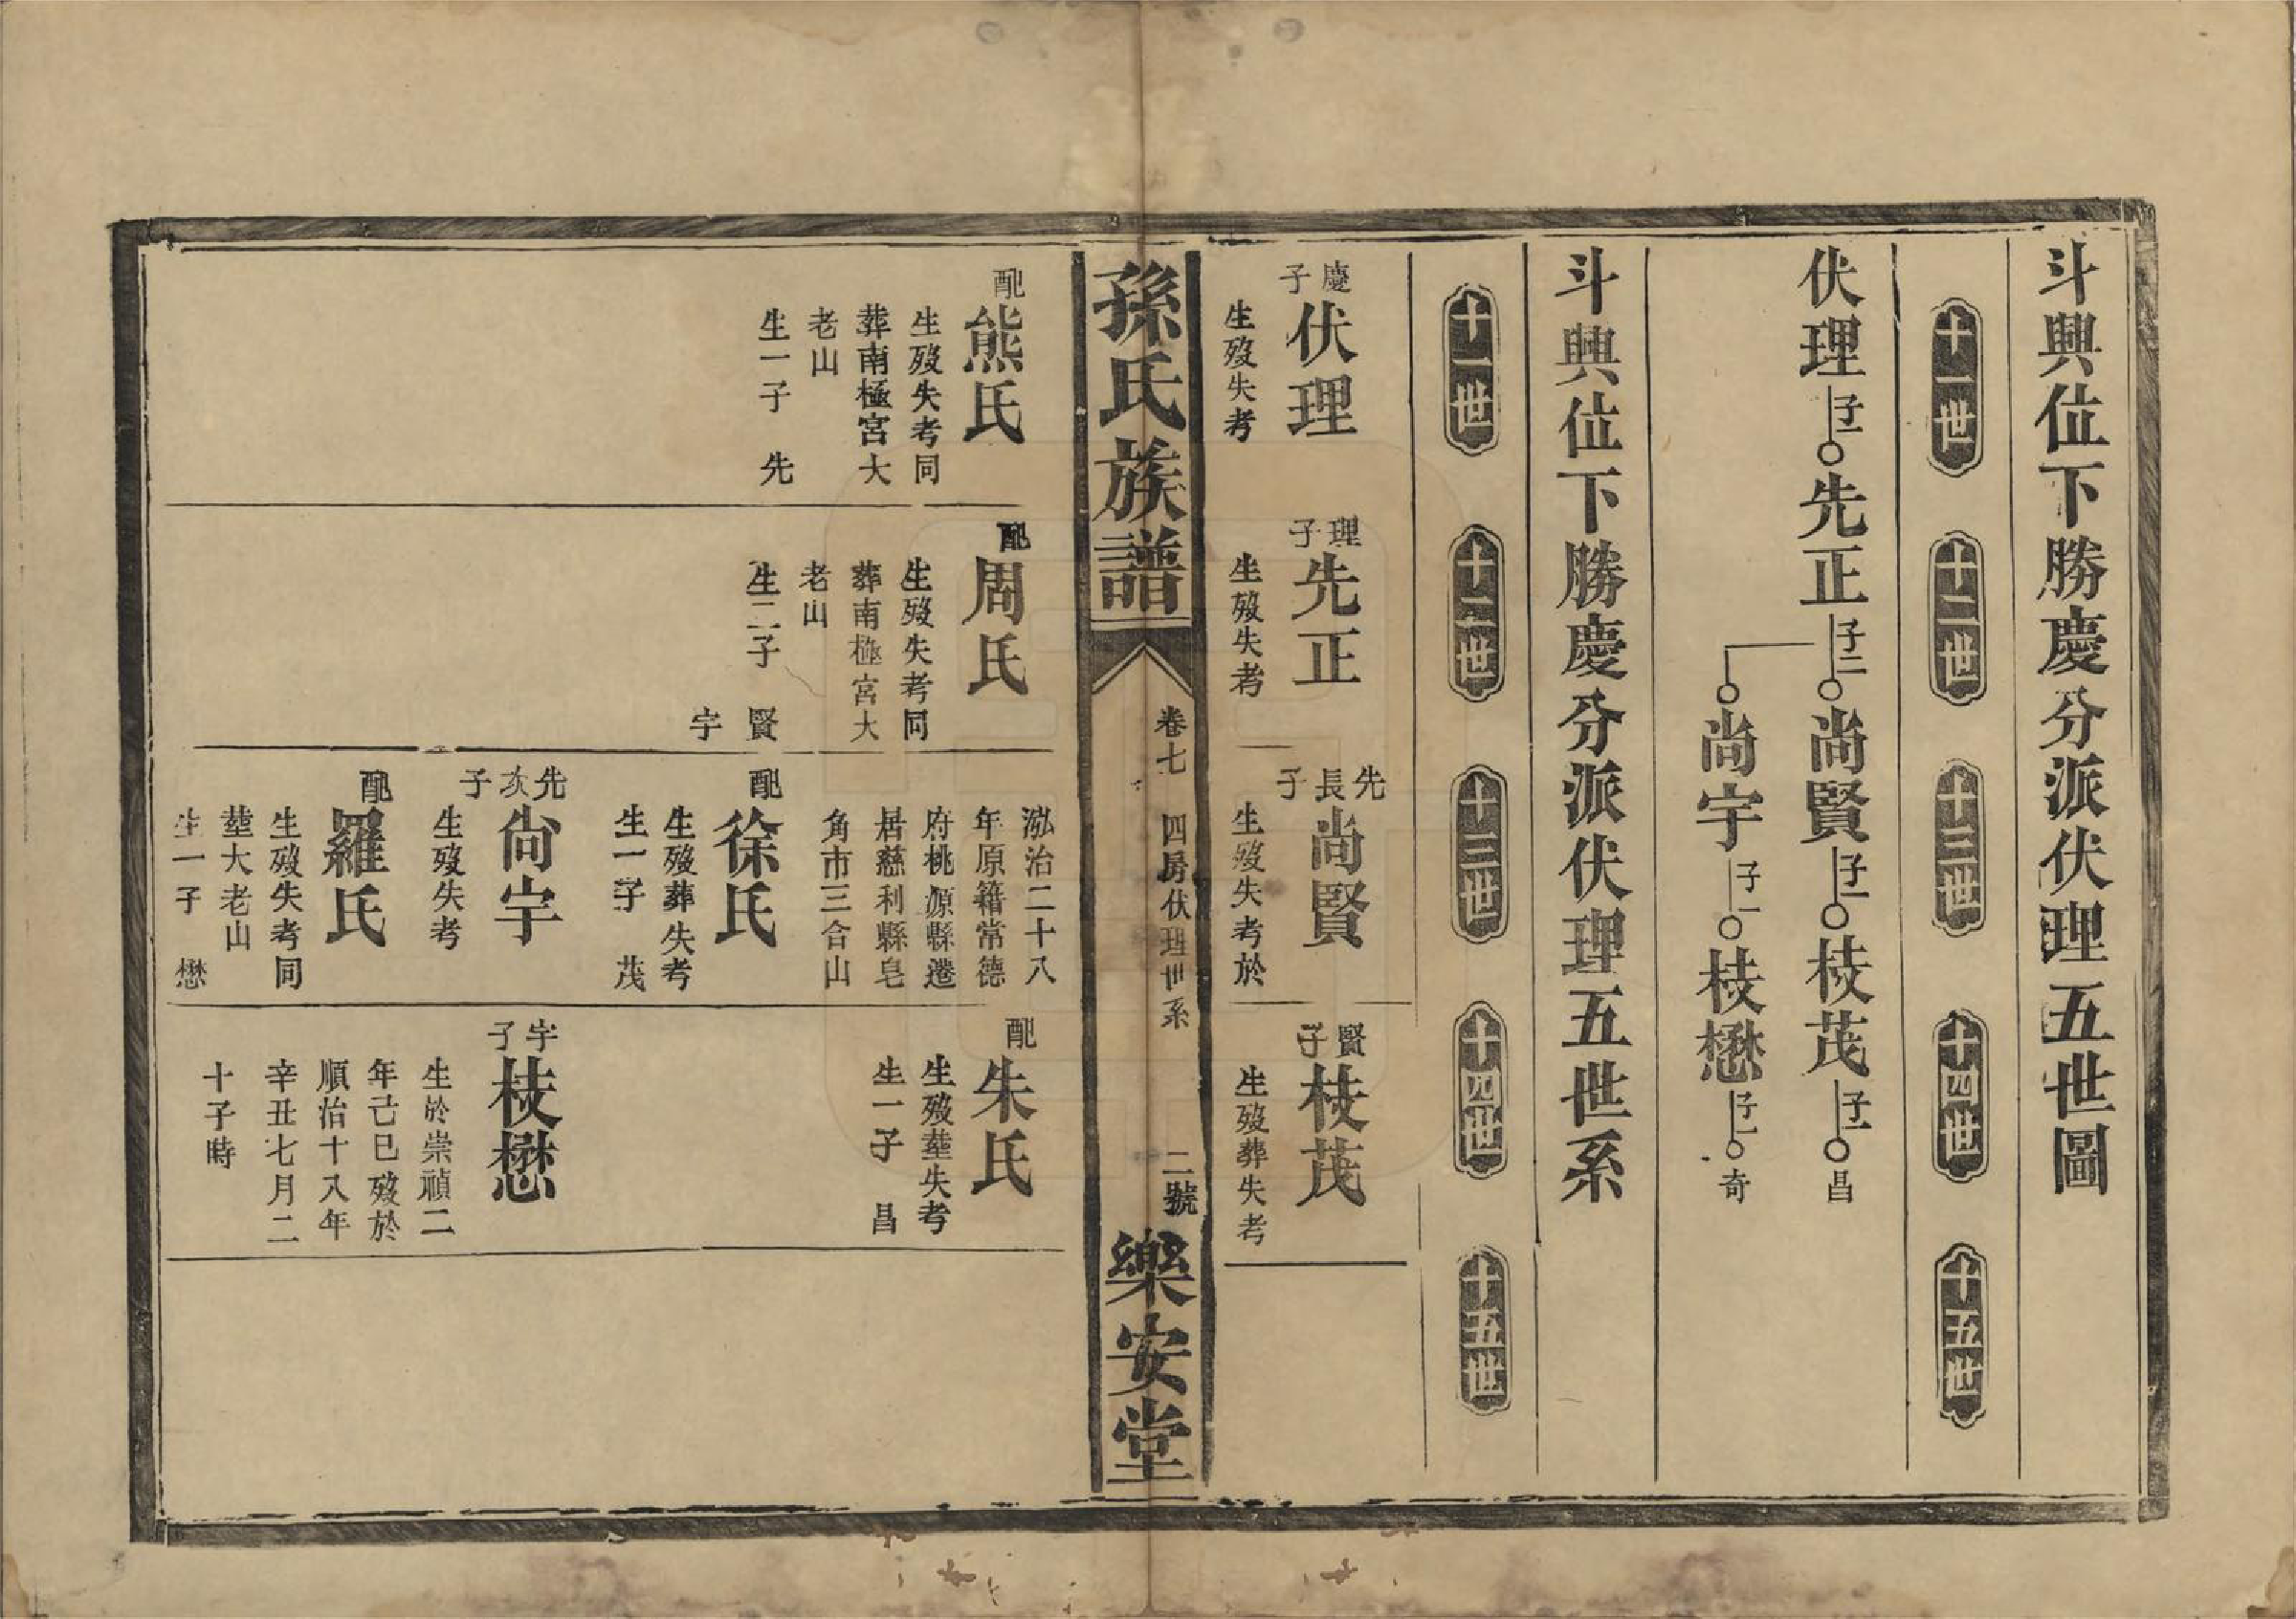 斗興位下勝慶分派伏理五世圖
十一世
十二世
十三世
十四世
十五世
伏理 子一 先正 子二 尚賢 子一 枝茂 子一 昌
尚宇 子一 枝懋 子一 奇
斗興位下勝慶分派伏理五世系
十一世
十二世
十三世
十四世
十五世
慶子 伏理
生歿失考
理子 先正
生歿失考
先長子 尚賢
生歿失考於
賢子 枝茂
生歿葬失考
孫氏族譜
卷七 四房伏理世系 二號
樂安堂
配 熊氏
生歿失考同
葬南極宮大
老山
生一子 先
配 周氏
生歿失考同
葬南極宮大
老山
生二子 賢
宇
泓治二十八
年原籍常德
府桃源縣遷
居慈利縣皂
角市三合山
配 徐氏
生歿葬失考
生一子 茂
先次子 尙宇
生歿失考
配 羅氏
生歿失考同
塟大老山
生一子 懋
配 朱氏
生歿塟失考
生一子 昌
宇子 枝懋
生於崇禎二
年己巳歿於
順治十八年
辛丑七月二
十子時